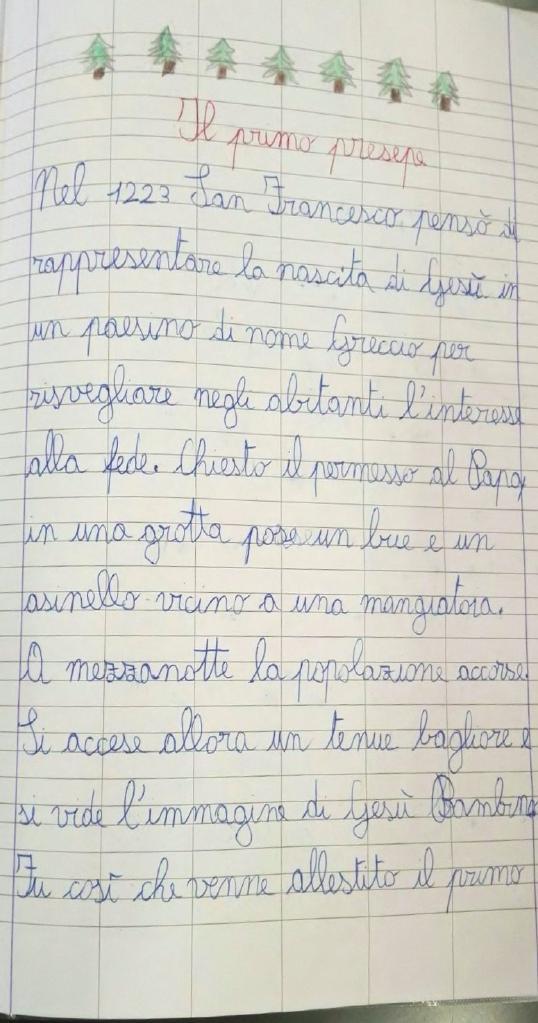 Il primo presepe
Nel 1223 San Francesco pensò di
rappresentare la nascita di Gesù in
un paesino di nome Greccio per
risvegliare negli abitanti l'interesse
alla fede. Chiesto il permesso al Papa,
in una grotta pose un bue e un
asinello vicino a una mangiatoia.
A mezzanotte la popolazione accorse.
Si accese allora un tenue bagliore e
si vide l'immagine di Gesù Bambino
Fu così che venne allestito il primo